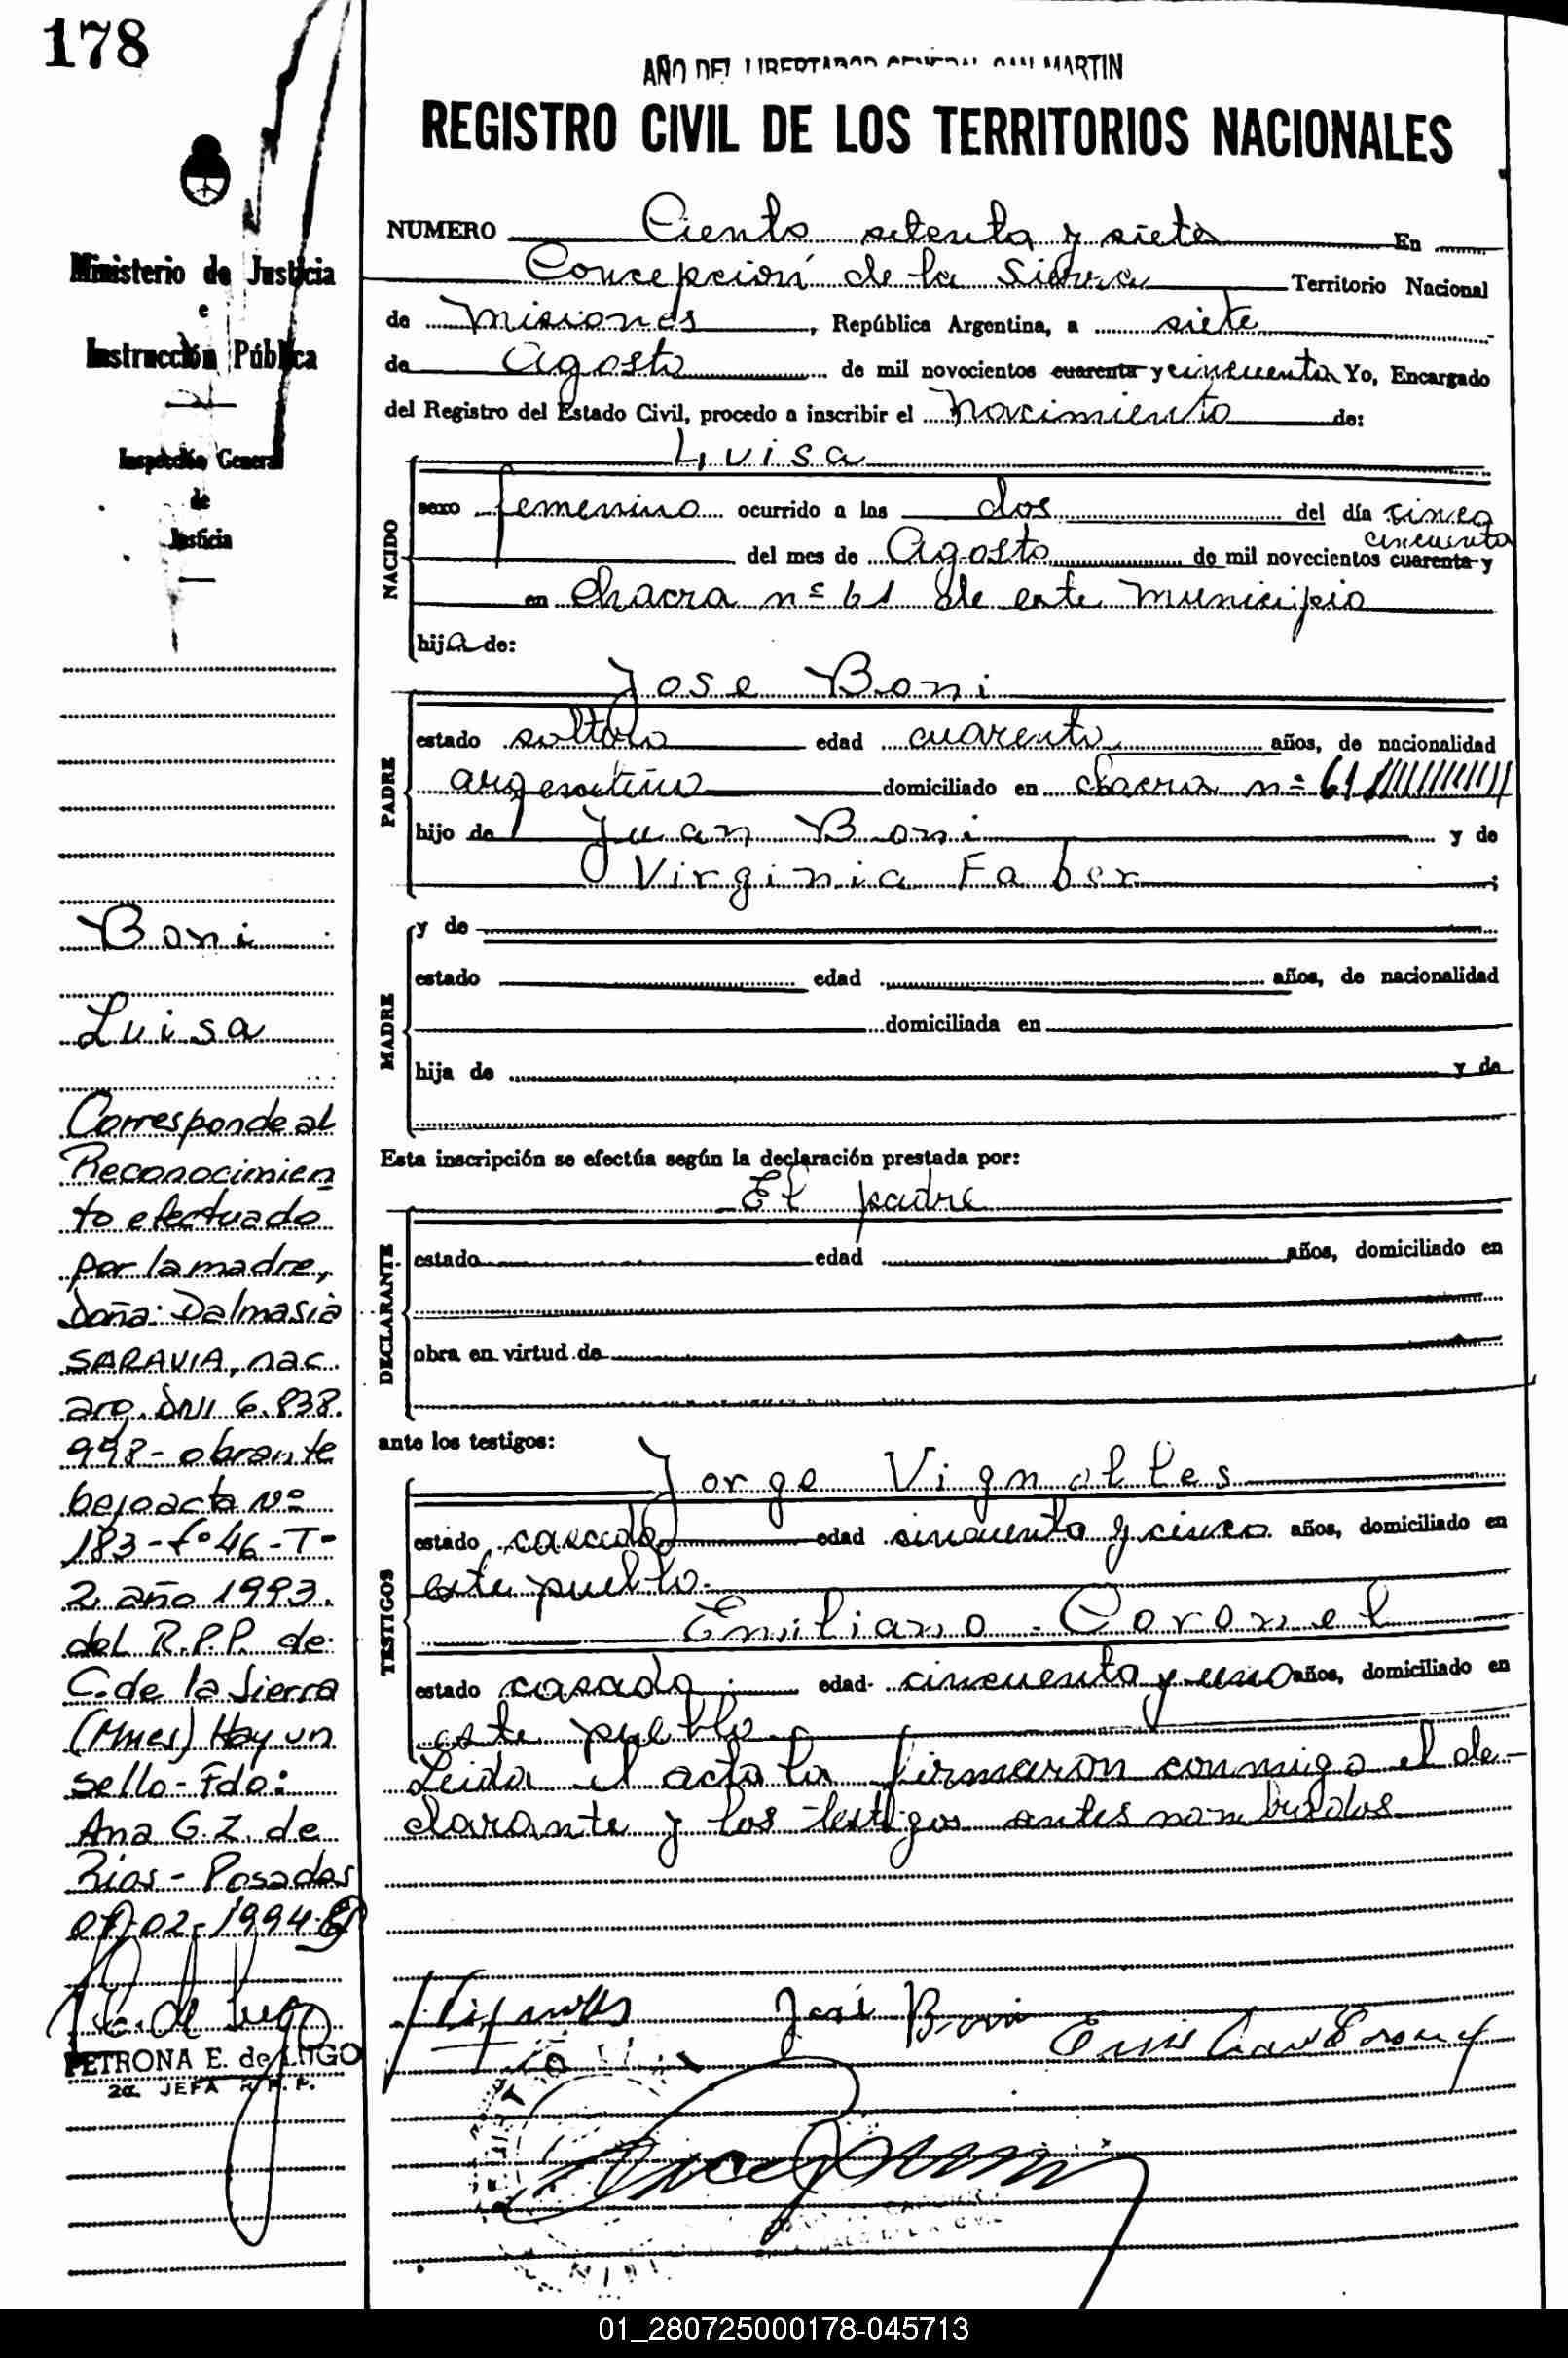 178
AÑO DEL LIBERTADOR GENERAL SAN MARTIN
REGISTRO CIVIL DE LOS TERRITORIOS NACIONALES
Ministerio de Justicia
e
Instrucción Pública
Inspección General
de
Justicia
NUMERO Ciento setenta y siete En
Concepción de la Sierra Territorio Nacional
de Misiones, República Argentina, a siete
de Agosto de mil novecientos cuarenta y cincuenta Yo, Encargado
del Registro del Estado Civil, procedo a inscribir el Nacimiento de:
Luisa
NACIDO
sexo femenino ocurrido a las dos del día cinco
cincuenta
del mes de Agosto de mil novecientos cuarenta y
en Chacra nº 61 de este Municipio
hija de:
Jose Boni
PADRE
estado soltero edad cuarenta años, de nacionalidad
argentino domiciliado en chacra nº 61
hijo de Juan Boni y de
Virginia Faber;
MADRE
y de
estado edad años, de nacionalidad
domiciliada en
hija de y de
Esta inscripción se efectúa según la declaración prestada por:
El padre
DECLARANTE
estado edad años, domiciliado en
obra en virtud de
ante los testigos:
Jorge Vignolles
TESTIGOS
estado casado edad sincuenta y cinco años, domiciliado en
este pueblo.
Emiliano Coronel
estado casado edad cincuenta y uno años, domiciliado en
este pueblo
Leida el acta la firmaron conmigo el de-
clarante y los testigos antes nombrados
Boni
Luisa
Corresponde al
Reconocimien
to efectuado
por la madre,
Doña: Dalmasia
SARAVIA, nac.
arg. DNI 6.838.
998- obrante
bajo acta Nº
183-fº46-Tº
2 año 1993.
del R.P.P. de
C. de la Sierra
(Mnes) Hay un
sello-Fdo:
Ana G.Z. de
Rios - Posadas
02-1994
PETRONA E. de LUGO
2a. JEFA R.P.P.
José Boni
01_280725000178-045713